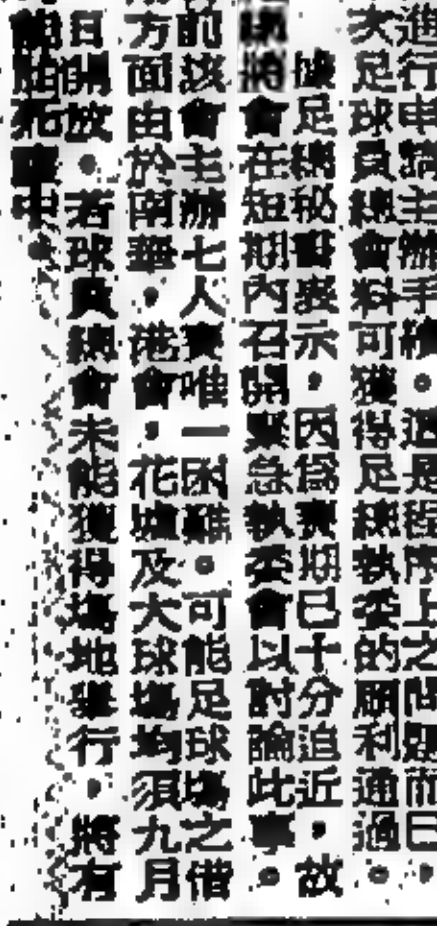 進行申請主辦手續。這是程序上之問題而已。
次足球員總會料可獲得足總執委的順利通過。
據足總秘書表示，因為賽期已十分迫近，故
將會在短期內召開緊急執委會以討論此事。
前該會主辦七人賽唯一困難。可能足球場之借
方面由於南華，港會，花墟及大球場均須九月
日開放。若球員總會未能獲得場地舉行，將有